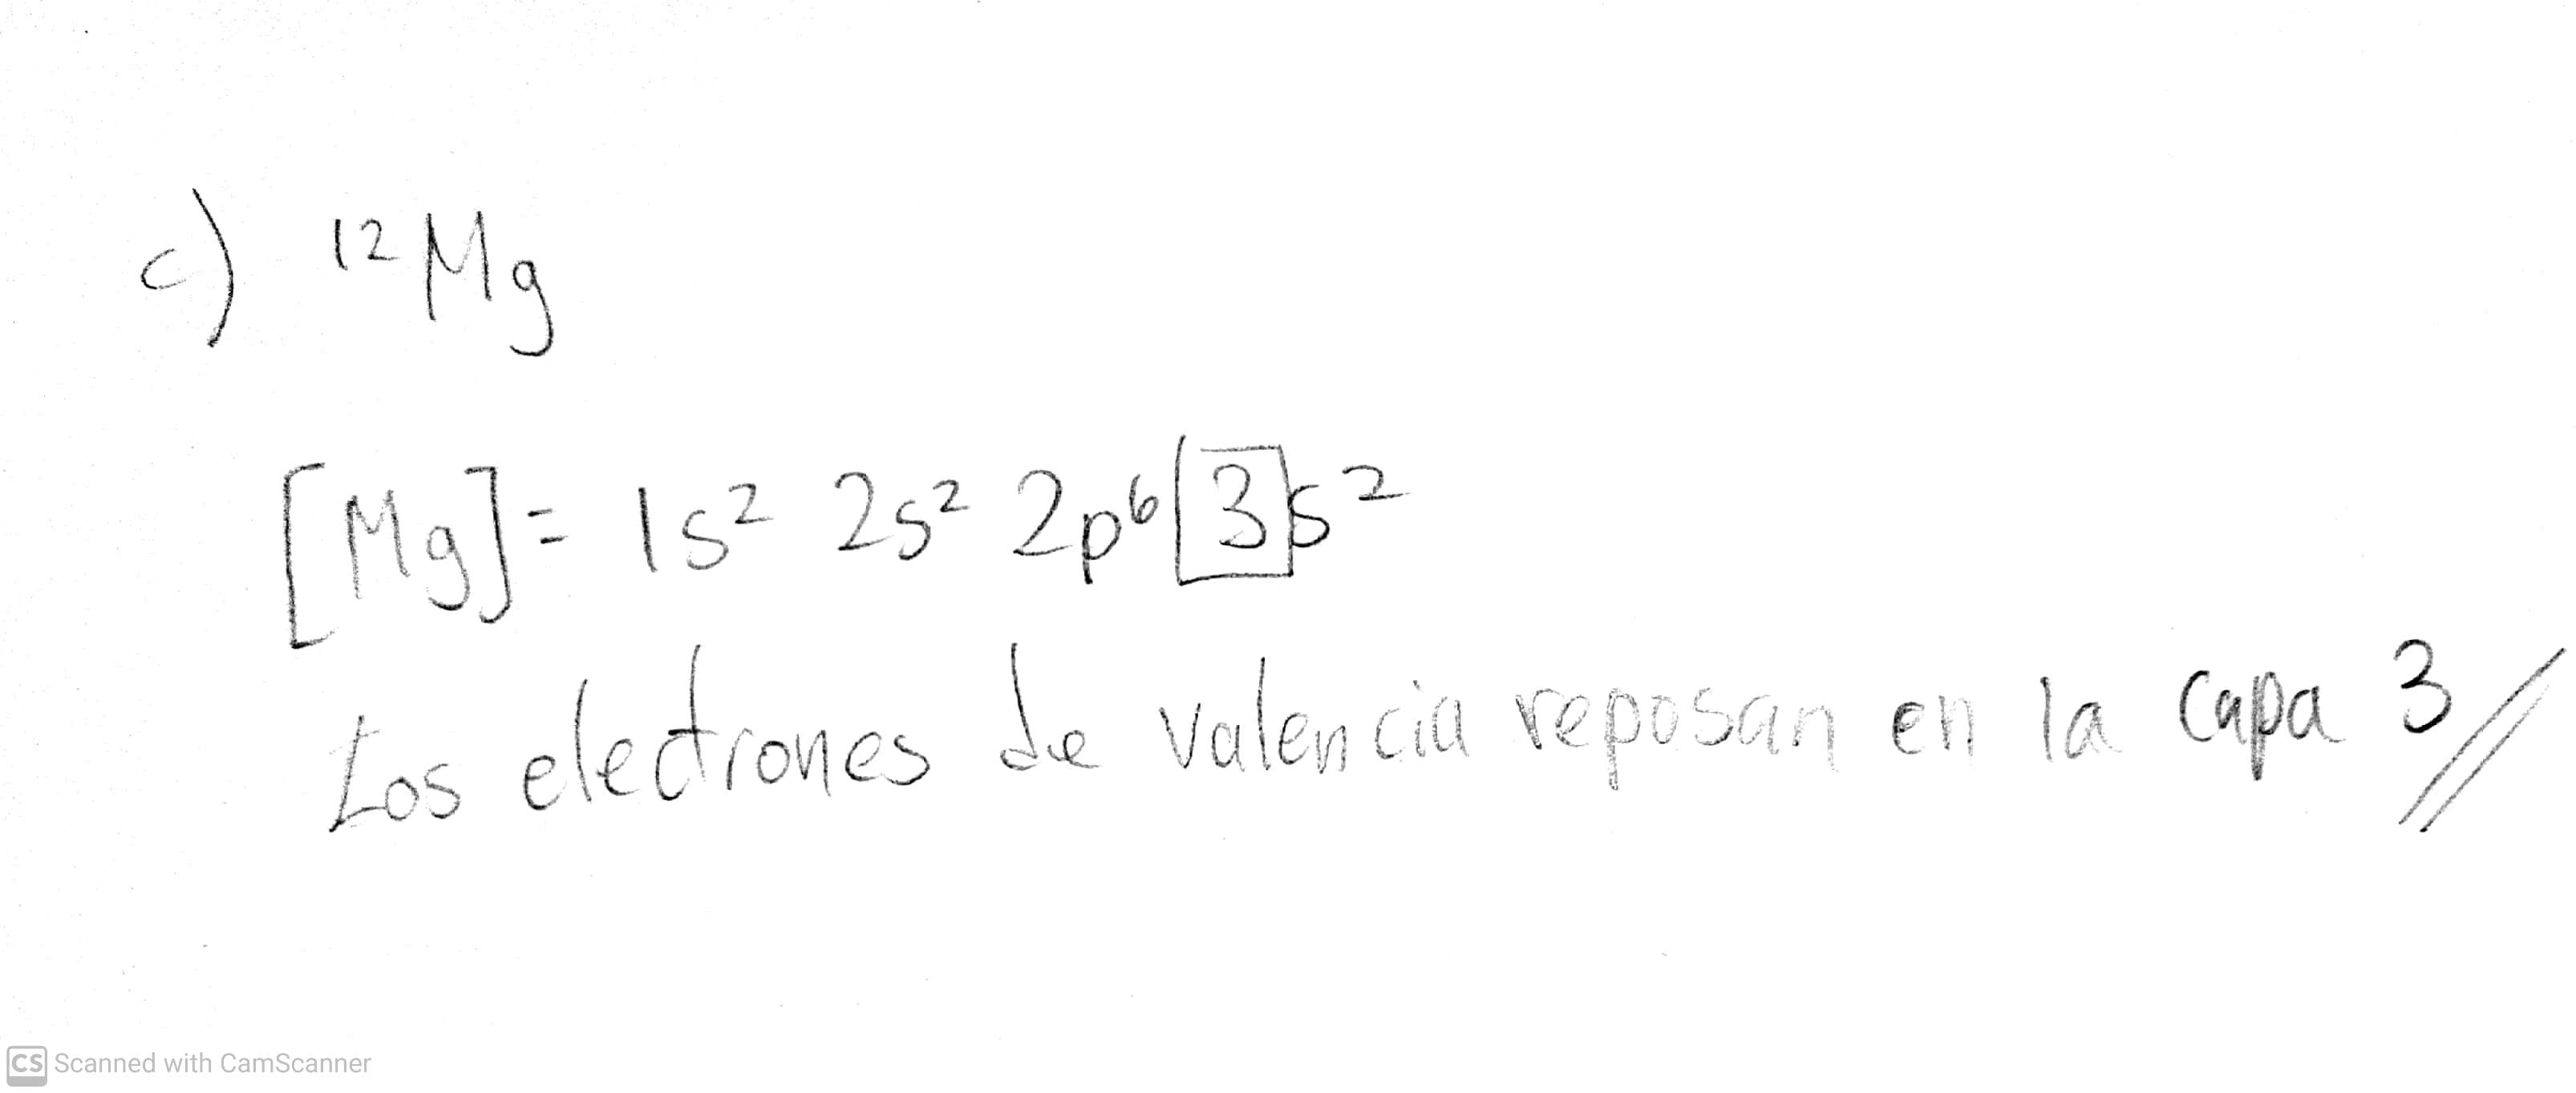 c) ¹²Mg
[Mg]= 1s² 2s² 2p⁶ 3s²
Los electrones de valencia reposan en la capa 3
CS Scanned with CamScanner